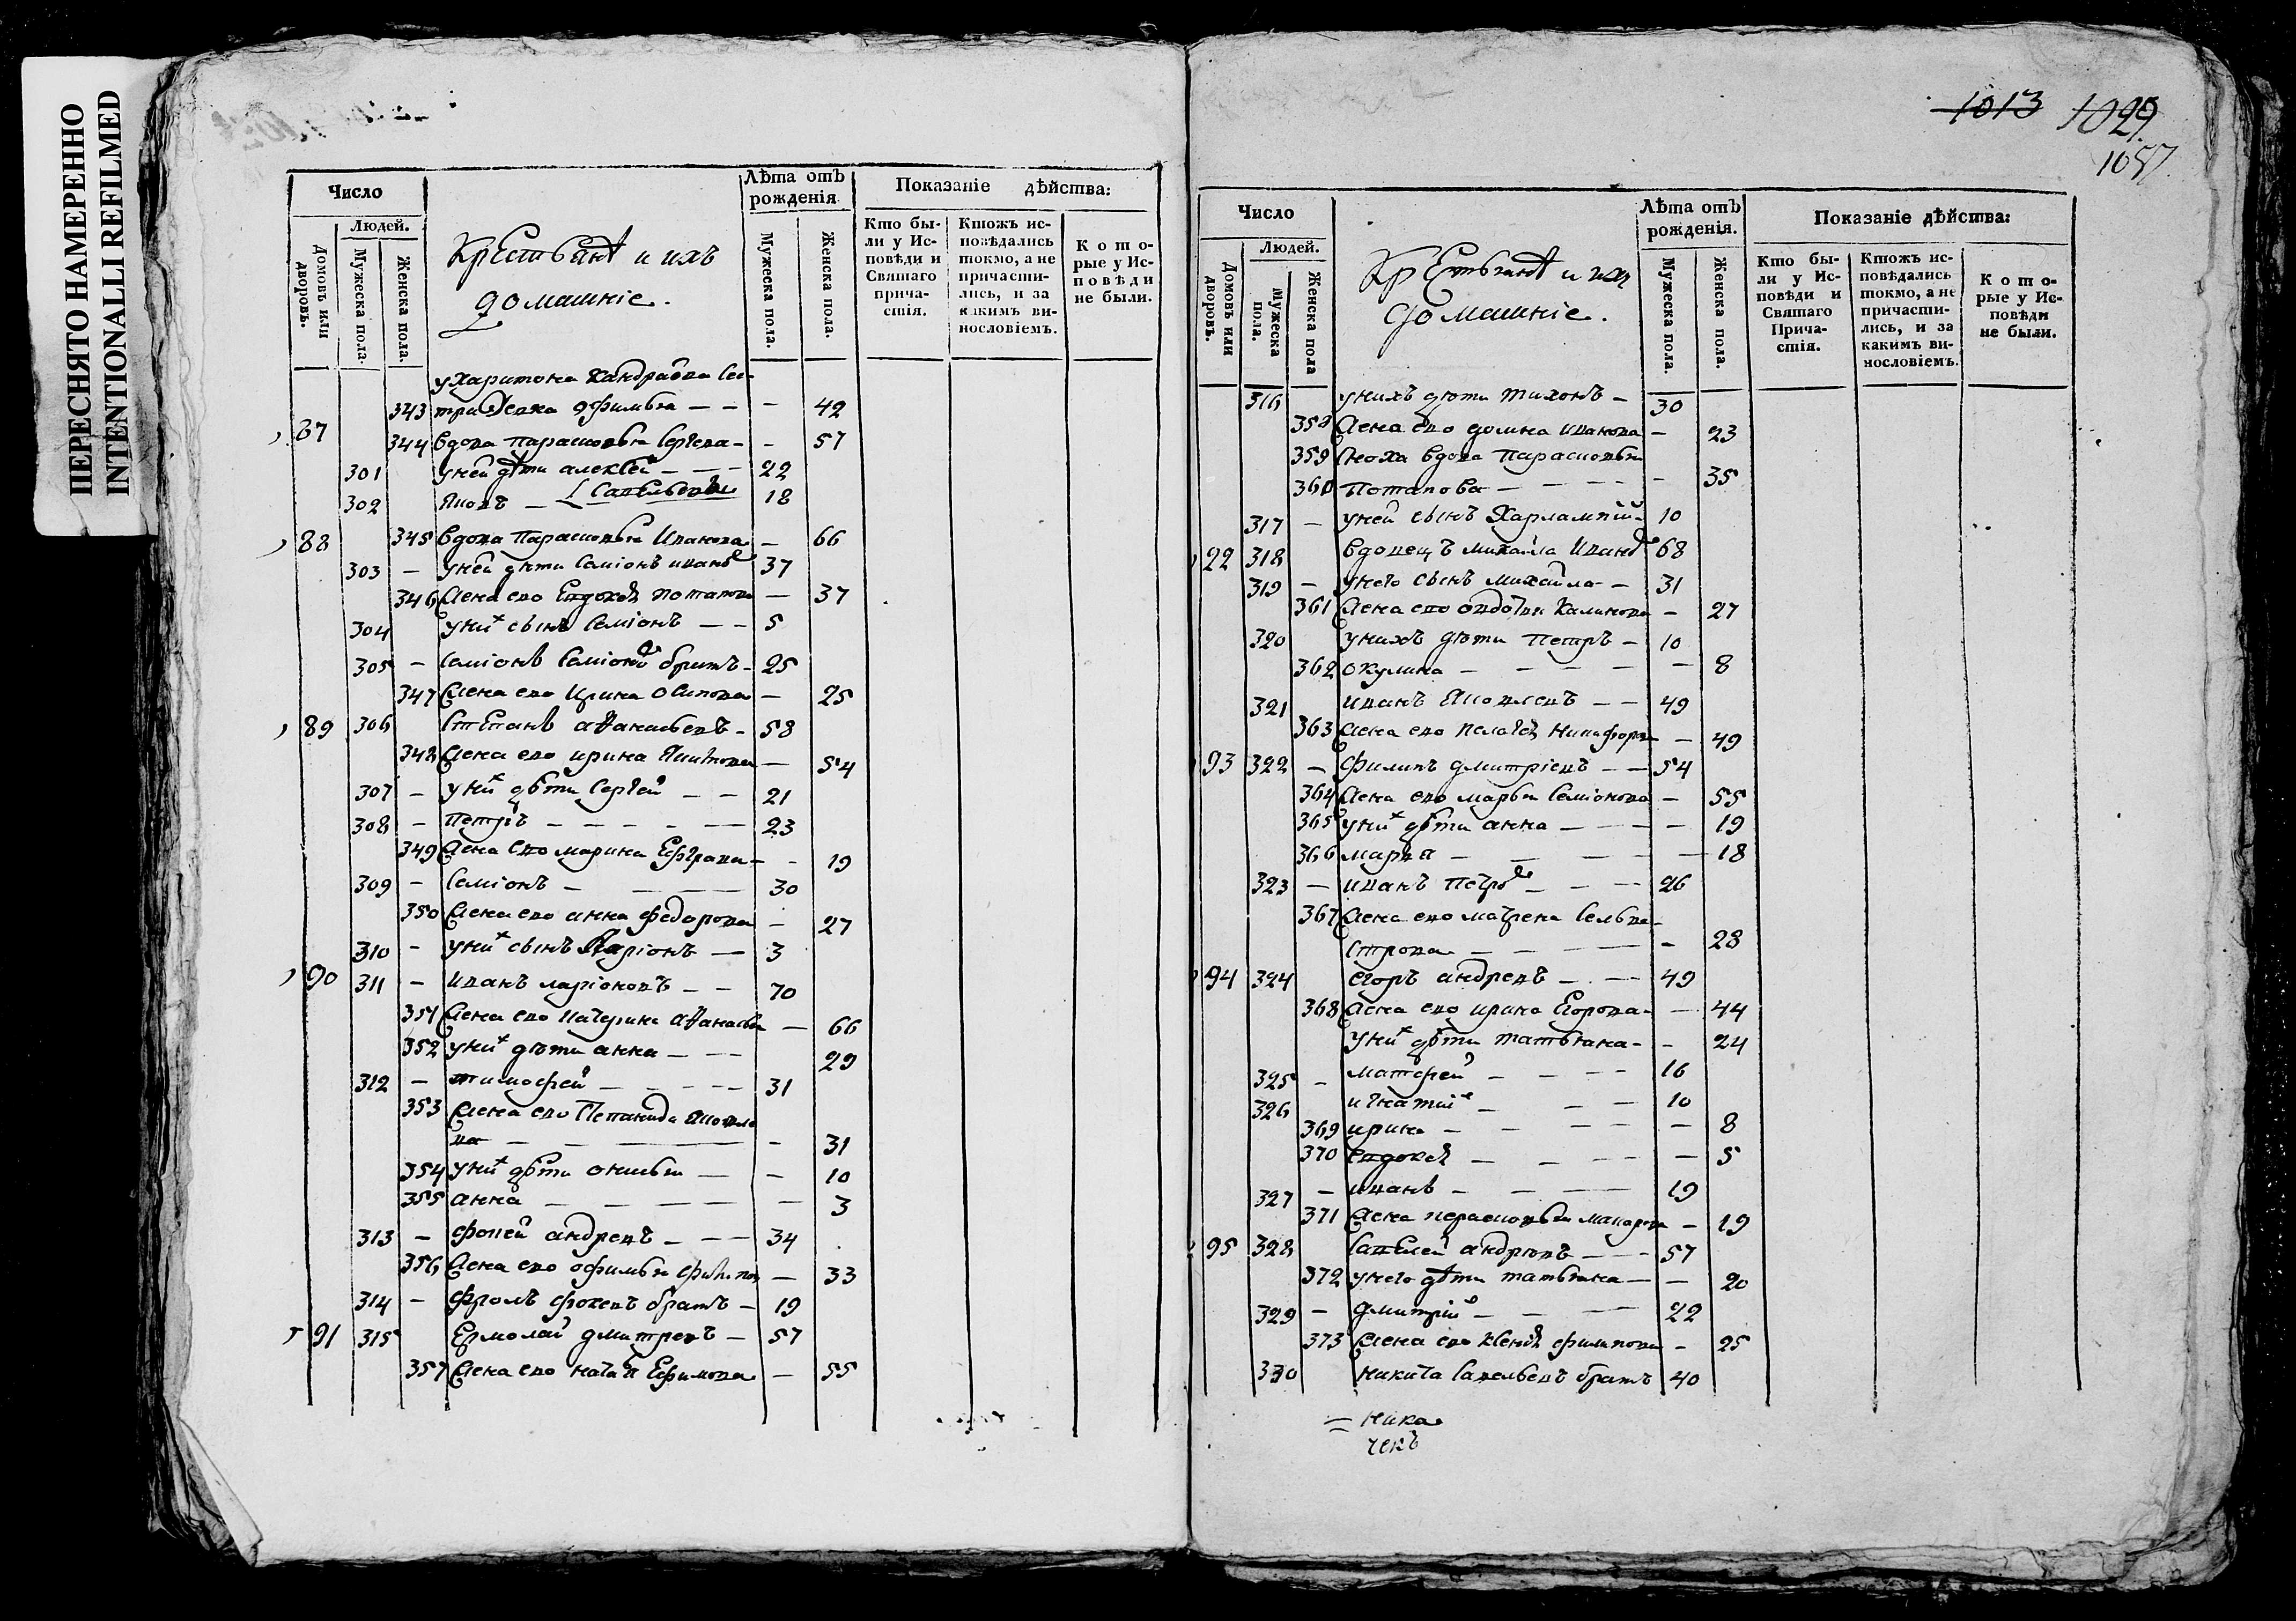 ПЕРЕСНЯТО НАМЕРЕННО
INTENTIONALLI REFILMED
Число
Людей.
Домовъ или дворовъ.
Мужеска пола.
Женска пола.
Крестьянѣ и ихъ
домашніе.
Лѣта отъ рожденія.
Мужеска пола.
Женска пола.
Показаніе дѣйства:
Кто бы-
ли у Ис-
повѣди и
Святаго
прича-
стія.
Ктожъ ис-
повѣдались
токмо, а не
причасти-
лись, и за
какимъ ви-
нословіемъ.
Кото-
рые у Ис-
повѣди
не были.
у Харитона Кандраова Сес-
343 тра Девка Офимья — — — 42
87 344 Вдова Парасковья Сергева — — 57
301 у ней дѣти алексѣй — — — 22
302 Яковъ — Савельевы 18
88 345 Вдова Парасковья Иванова — 66
303 — у ней дѣти Семіонъ иванов 37
346 Жена ево Евдокея потапова — 37
304 у них сынъ Семіонъ — — 5
305 — Семіонъ Семіонов братъ — 25
347 Жена ево Ирина Осипова — 25
89 306 Степанъ аѳанасьевъ — 58
348 Жена ево ирина — 54
307 — у них дѣти Сергей — — 21
308 — Петръ — — — — — 23
349 Жена ево марина Ефграва — — 19
309 — Семіонъ — — — — 30
350 Жена ево анна федорова — 27
310 — у них сынъ Ларіонъ — 3
90 311 — Иванъ ларіоновъ — — 70
351 Жена ево Катерина аѳанасьева — 66
352 у них дѣти анна — — — 29
312 — тимофей — — — — — 31
353 Жена ево Степанида Яковле
ва — — — — 31
354 у них дѣти — — 10
355 анна — — — — — — 3
313 — фокей андревъ — — — 34
356 Жена ево офимья Филипов — 33
314 — фролъ фокевъ братъ — 19
91 315 Ермолай дмитревъ — 57
357 Жена ево Наталя Ефимова — 55
1013 1029
1057
Число
Людей.
Домовъ или дворовъ.
Мужеска пола.
Женска пола
Крестьянѣ и их
домашніе.
Лѣта отъ рожденія.
Мужеска пола.
Женска пола.
Показаніе дѣйства:
Кто бы-
ли у Ис-
повѣди и
Святаго
Прича-
стія.
Ктожъ ис-
повѣдались
токмо, а не
причасти-
лись, и за
какимъ ви-
нословіемъ.
Кото-
рые у Ис-
повѣди
не были.
316 у нихъ дѣти тихонъ — 30
358 Жена ево домна иванова — 23
359 Сноха вдова Парасковья
360 Потапова — — — — — 35
317 — у ней сынъ Харлампій — 10
92 318 Вдовецъ михайла Иванов 68
319 — у него сынъ михайла — 31
361 Жена ево овдотья Калинова — 27
320 у нихъ дѣти Петръ — 10
362 окулина — — — — — — 8
321 иванъ Яковлевъ — — 49
363 Жена ево пелагея Никифорова — 49
93 322 — Филипъ дмитріевъ — — 54
364 Жена ево марья Семіонова — 55
365 у них дѣти анна — — — — 19
366 марѳа — — — — — 18
323 — иванъ Петров — — — 26
367 Жена ево матрена Сельве-
строва — — — — — 28
94 324 егоръ андревъ — — — 49
368 Жена ево ирина Егорова — — 44
у них дѣти татьяна — — 24
325 — матфей — — — — 16
326 игнатий — — — 10
369 ирина — — — — — 8
370 Евдокея — — — — — 5
327 — иванъ — — — — 19
371 Жена парасковья макарова — 19
95 328 Савелей андрювъ — — — 57
372 у него дѣти татьяна — — 20
329 — дмитрій — — — 22
373 Жена ево Ксенія филипова — 25
330 Никита Савельевъ братъ 40